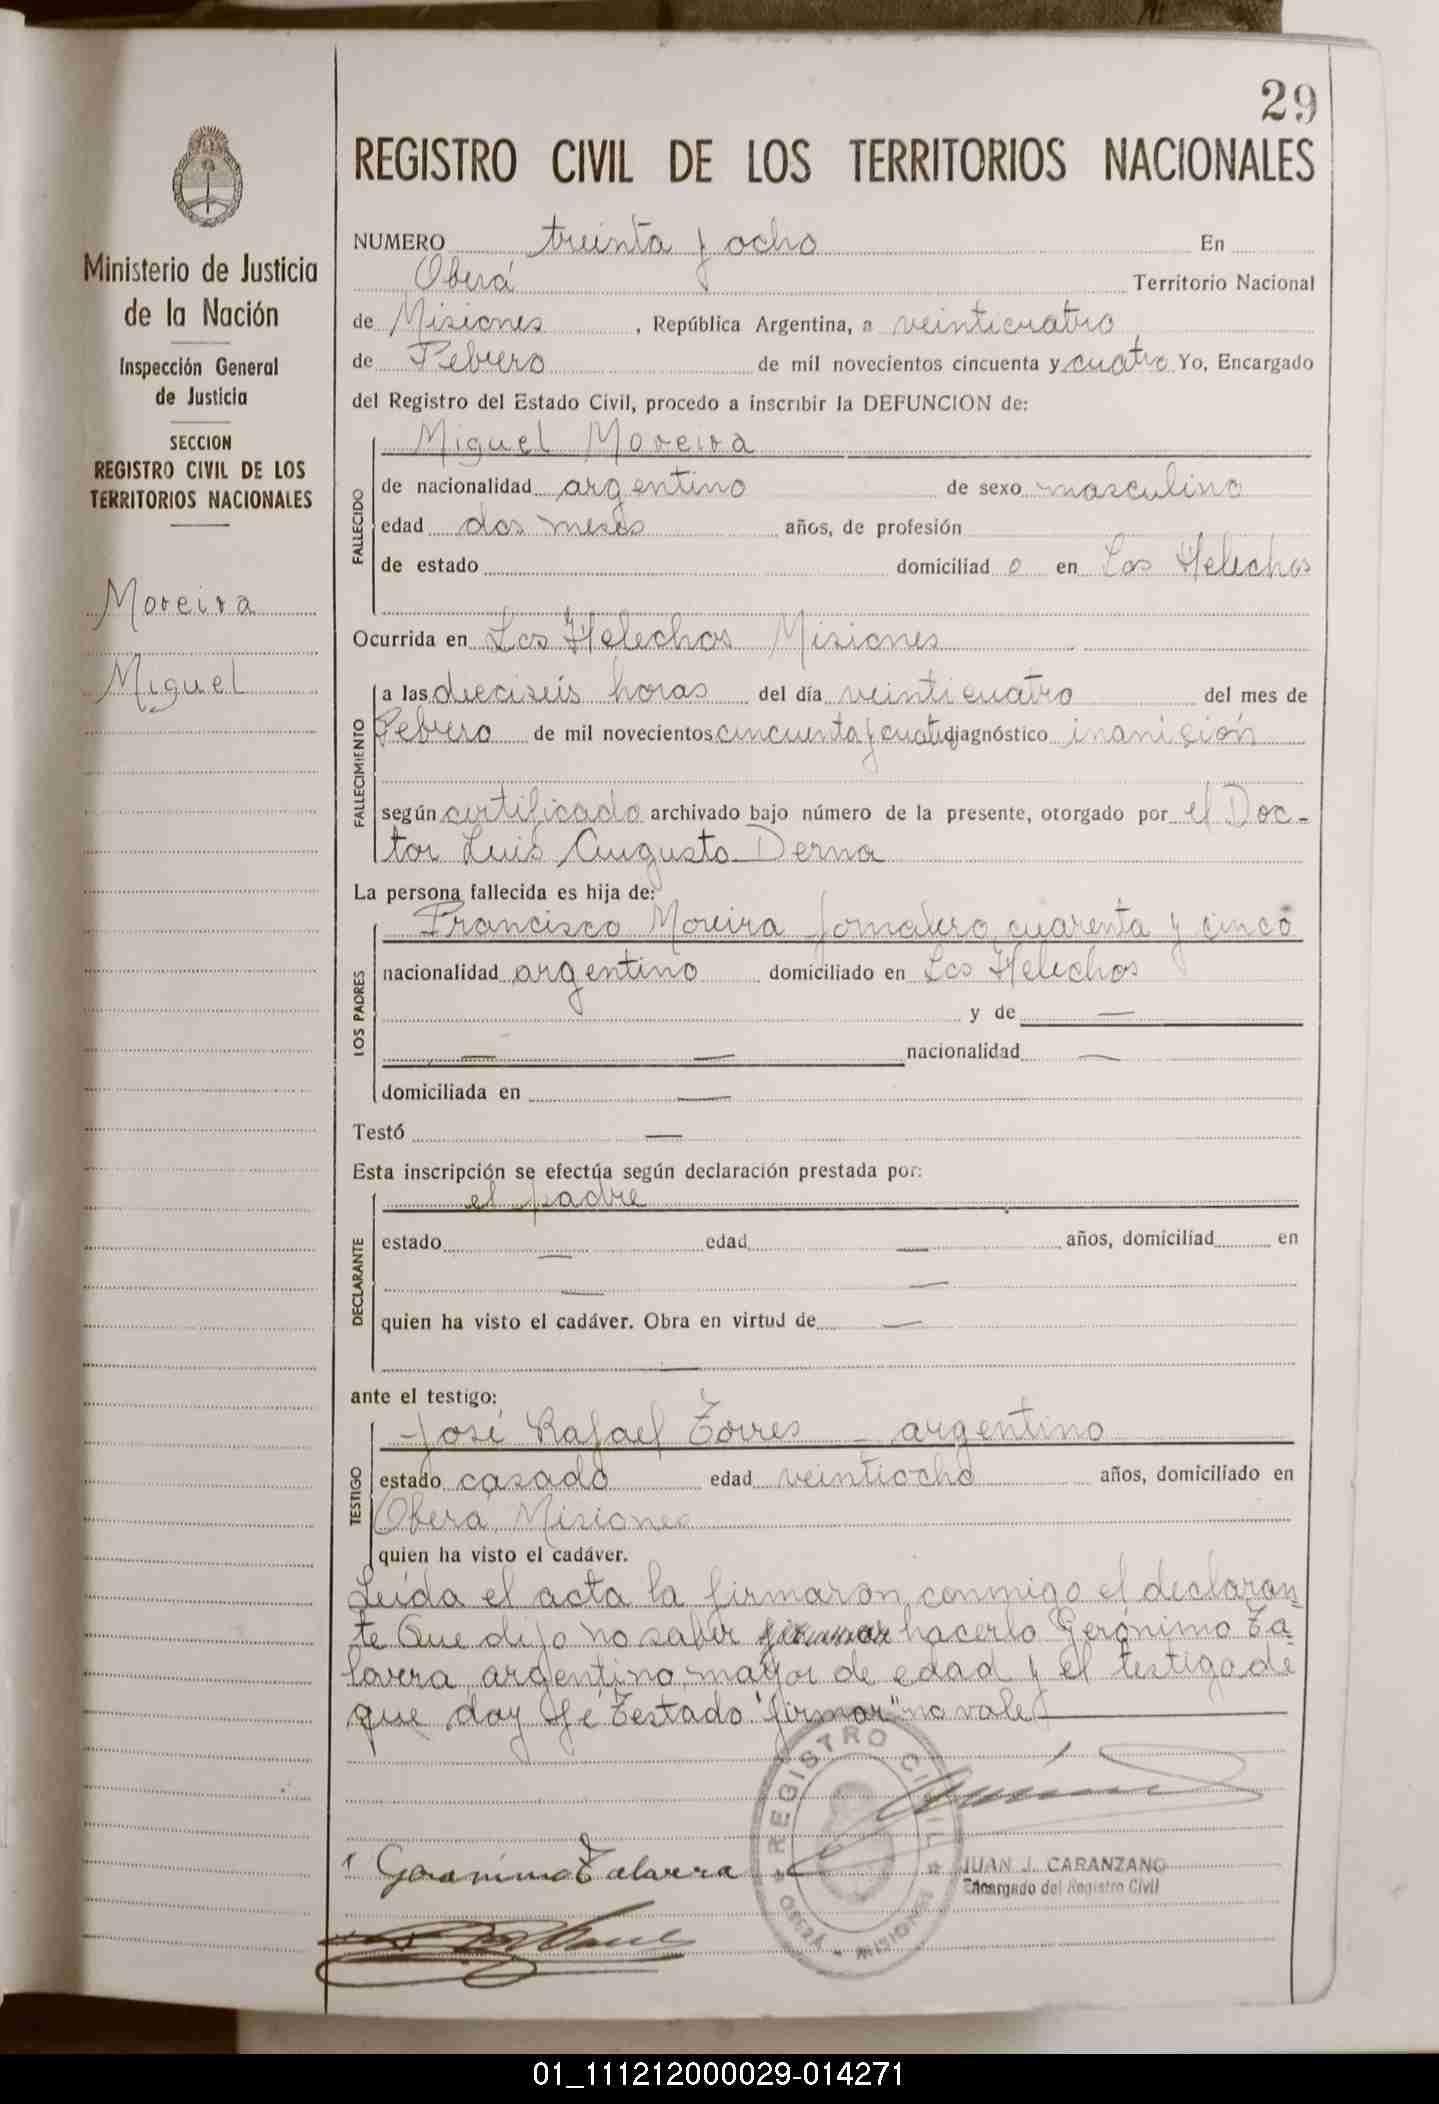 29
REGISTRO CIVIL DE LOS TERRITORIOS NACIONALES
Ministerio de Justicia
de la Nación
Inspección General
de Justicia
SECCION
REGISTRO CIVIL DE LOS
TERRITORIOS NACIONALES
Moreira
Miguel
NUMERO treinta y ocho En
Oberá Territorio Nacional
de Misiones, República Argentina, a veinticuatro
de Febrero de mil novecientos cincuenta y cuatro Yo, Encargado
del Registro del Estado Civil, procedo a inscribir la DEFUNCION de:
FALLECIDO
Miguel Moreira
de nacionalidad argentino de sexo masculino
edad dos meses años, de profesión
de estado domiciliado en Los Helechos
Ocurrida en Los Helechos Misiones
FALLECIMIENTO
a las dieciseis horas del día veinticuatro del mes de
Febrero de mil novecientos cincuenta y cuatro diagnóstico inanición
según certificado archivado bajo número de la presente, otorgado por el Doc-
tor Luis Augusto Derna
La persona fallecida es hija de:
LOS PADRES
Francisco Moreira jornalero, cuarenta y cinco
nacionalidad argentino domiciliado en Los Helechos
y de —
— — nacionalidad —
domiciliada en —
Testó —
Esta inscripción se efectúa según declaración prestada por:
DECLARANTE
el padre
estado — edad — años, domiciliad en
— —
quien ha visto el cadáver. Obra en virtud de —
—
ante el testigo:
TESTIGO
José Rafael Torres – argentino
estado casado edad veintiocho años, domiciliado en
Oberá, Misiones
quien ha visto el cadáver.
Leída el acta la firmaron conmigo el declaran-
te Que dijo no saber firmar hacerlo Gerónimo Ta-
lavera argentino, mayor de edad y el testigo de
que doy fé Testado "firmar" no vale
REGISTRO CIVIL
OBERÁ MISIONES
Geronimo Talavera
JUAN J. CARANZANO
Encargado del Registro Civil
01_111212000029-014271